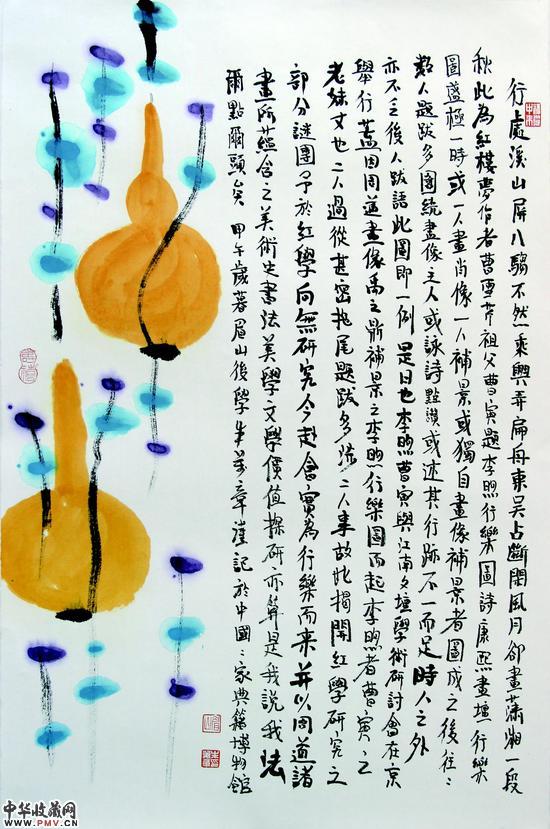 行處溪山屏八騶不然乘興弄扁舟東吳占斷閒風月卻畫瀟湘一段
秋此為紅樓夢作者曹雪芹祖父曹寅題李煦行樂圖詩康熙畫壇行樂
圖盛極一時或一人畫肖像一人補景或獨自畫像補景者圖成之後往〻
數人題跋多圍繞畫像之人或詠詩點讚或述其行跡不一而足時人之外
亦不乏後人跋語此圖即一例是日也李煦曹寅與江南文壇學術研討會在京
舉行蓋因周道畫像禹之鼎補景之李煦行樂圖而起李煦者曹寅之
老妹丈也二人過從甚密拖尾題跋多涉二人事故此揭開紅學研究之
部分謎團予於紅學向無研究今赴會實為行樂而來並以周道諸
畫所蘊含之美術史書法美學文學價值探研亦算是我說我法
爾點爾頭矣 甲午歲暮眉山後學朱萬章謹記於中國〻家典籍博物館
中华收藏网
www.PMV.CN